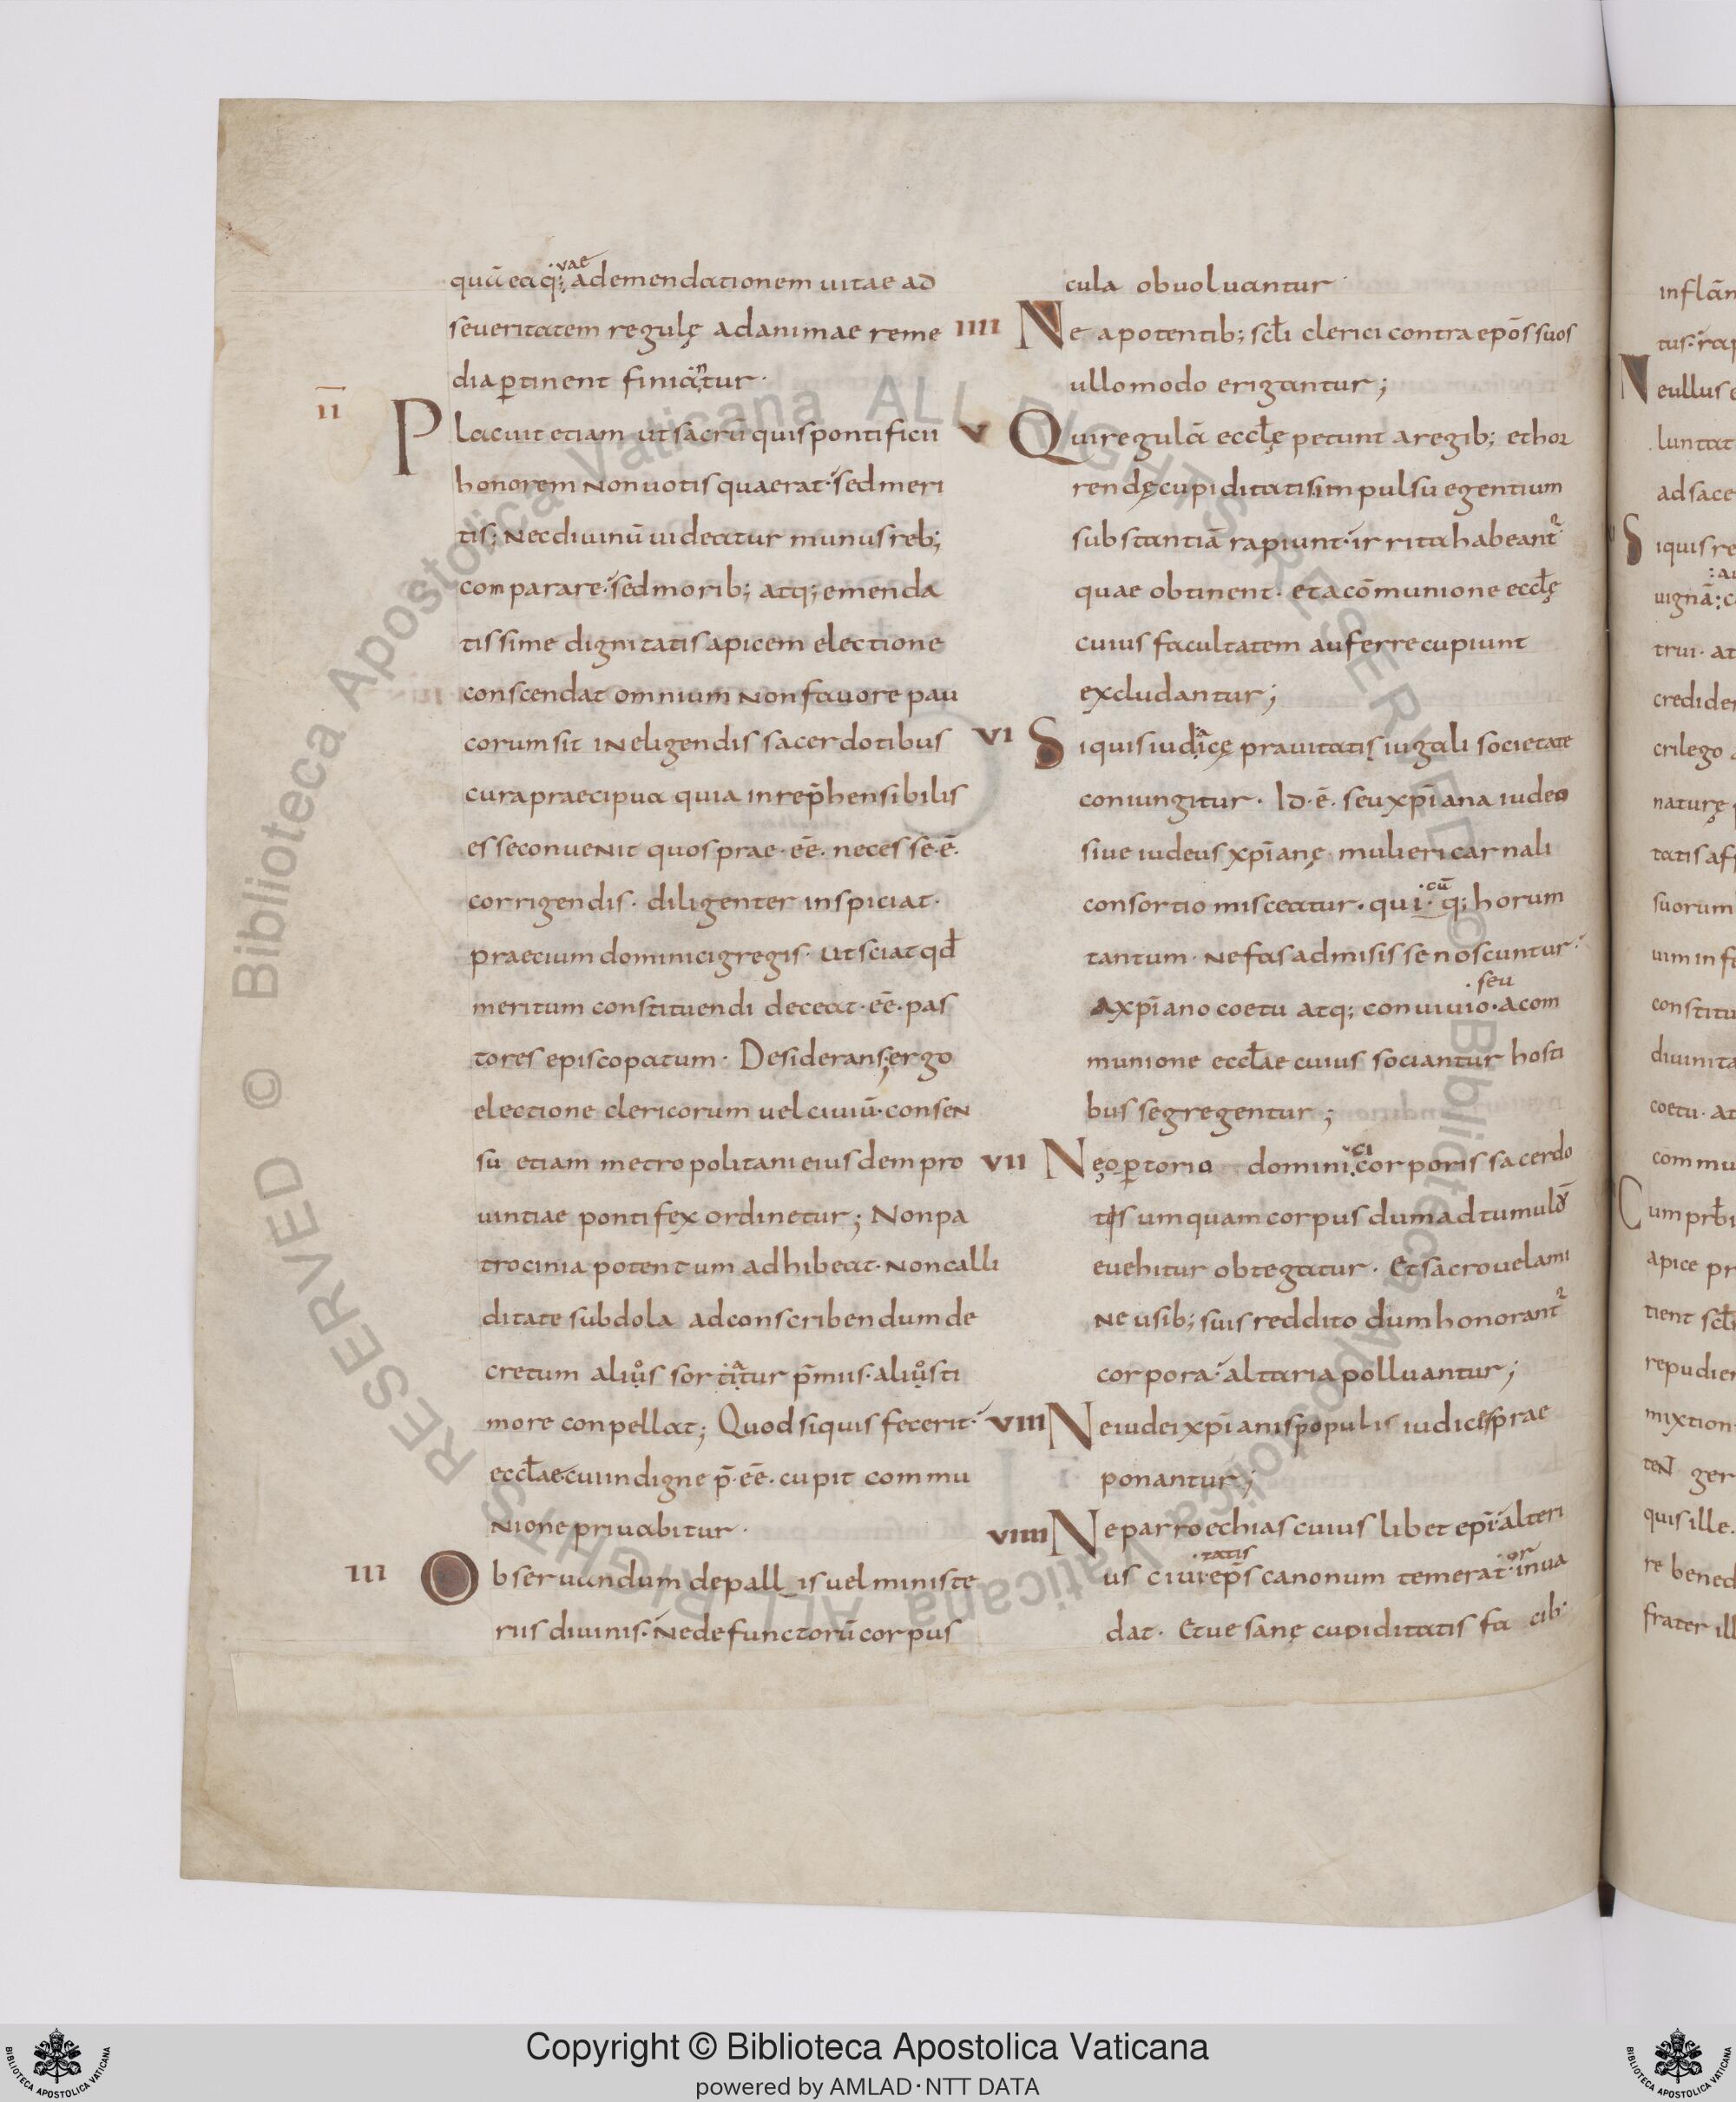 quā ea q:, ·vae ademendationem uitae ad
seueritatem regulę adanimae reme
dia ꝑtinent finian̄tur·
II
Placuit etiam ut sacrū quis pontificii
honorem non uotis quaerat· sed meri
tis; Nec diuinū uideatur munus reb;
comparare· sed morib; atq; emenda
tissime dignitatis apicem electione
conscendat omnium non fauore pau
corum sit in eligendis sacerdotibus
cura praecipua quia inrep̄hensibilis
esse conuenit quos prae·eē· necesse·ē·
corrigendis· diligenter inspiciat·
praecium dominici gregis· ut sciat qđ
meritum constituendi deceat·eē·pas
tores episcopatum· Desiderans; ergo
electione clericorum uel ciuiū· consen
su etiam metropolitani eiusdem pro
uintiae pontifex ordinetur; Non pa
trocinia potentum adhibeat· non calli
ditate subdola ad conscribendum de
cretum aliuos sortiatur p̄miis· aliuos ti
more conpellat; Quod si quis fecerit·
eccłae cui indigne p̄·eē· cupit commu
nione priuabitur·
III
Obseruandum de pallis uel ministe
riis diuinis· Ne defunctorū corpus
cula obuoluantur·
IIII
Ne a potentib; scłi clerici contra epōs suos
ullo modo erigantur;
V
Qui regulā eccłę petunt a regib; et hor
rendę cupiditatis impulsu egentium
substantiā rapiunt· irrita habeant̃·
quae obtinent· et a cōmunione eccłę
cuius facultatem auferre cupiunt
excludantur;
VI
Si quis iudaicę prauitatis iugali societate
coniungitur· Id·ē· seu xp̄iana iudeo
siue iudeus xp̄ianę mulieri carnali
consortio misceatur· qui· ·cū q; horum
tantum· nefas admisisse noscuntur·
A xp̄iano coetu atq; conuiuio· ·seu a com
munione eccłae cuius sociantur hosti
bus segregentur;
VII
Ne oꝑtorio dominici corporis sacerdo
tis umquam corpus dum ad tumulū
euehitur obtegatur· Et sacro uelami
ne usib; suis reddito dum honorant̃
corpora· altaria polluantur;
VIII
Ne iudei xp̄ianis populis iudices prae
ponantur;
VIIII
Ne parroechias cuiuslibet epi· alteri
us ciui·tatis eps canonum temerator inua
dat· Et uesanę cupiditatis facib·
Copyright © Biblioteca Apostolica Vaticana
powered by AMLAD·NTT DATA